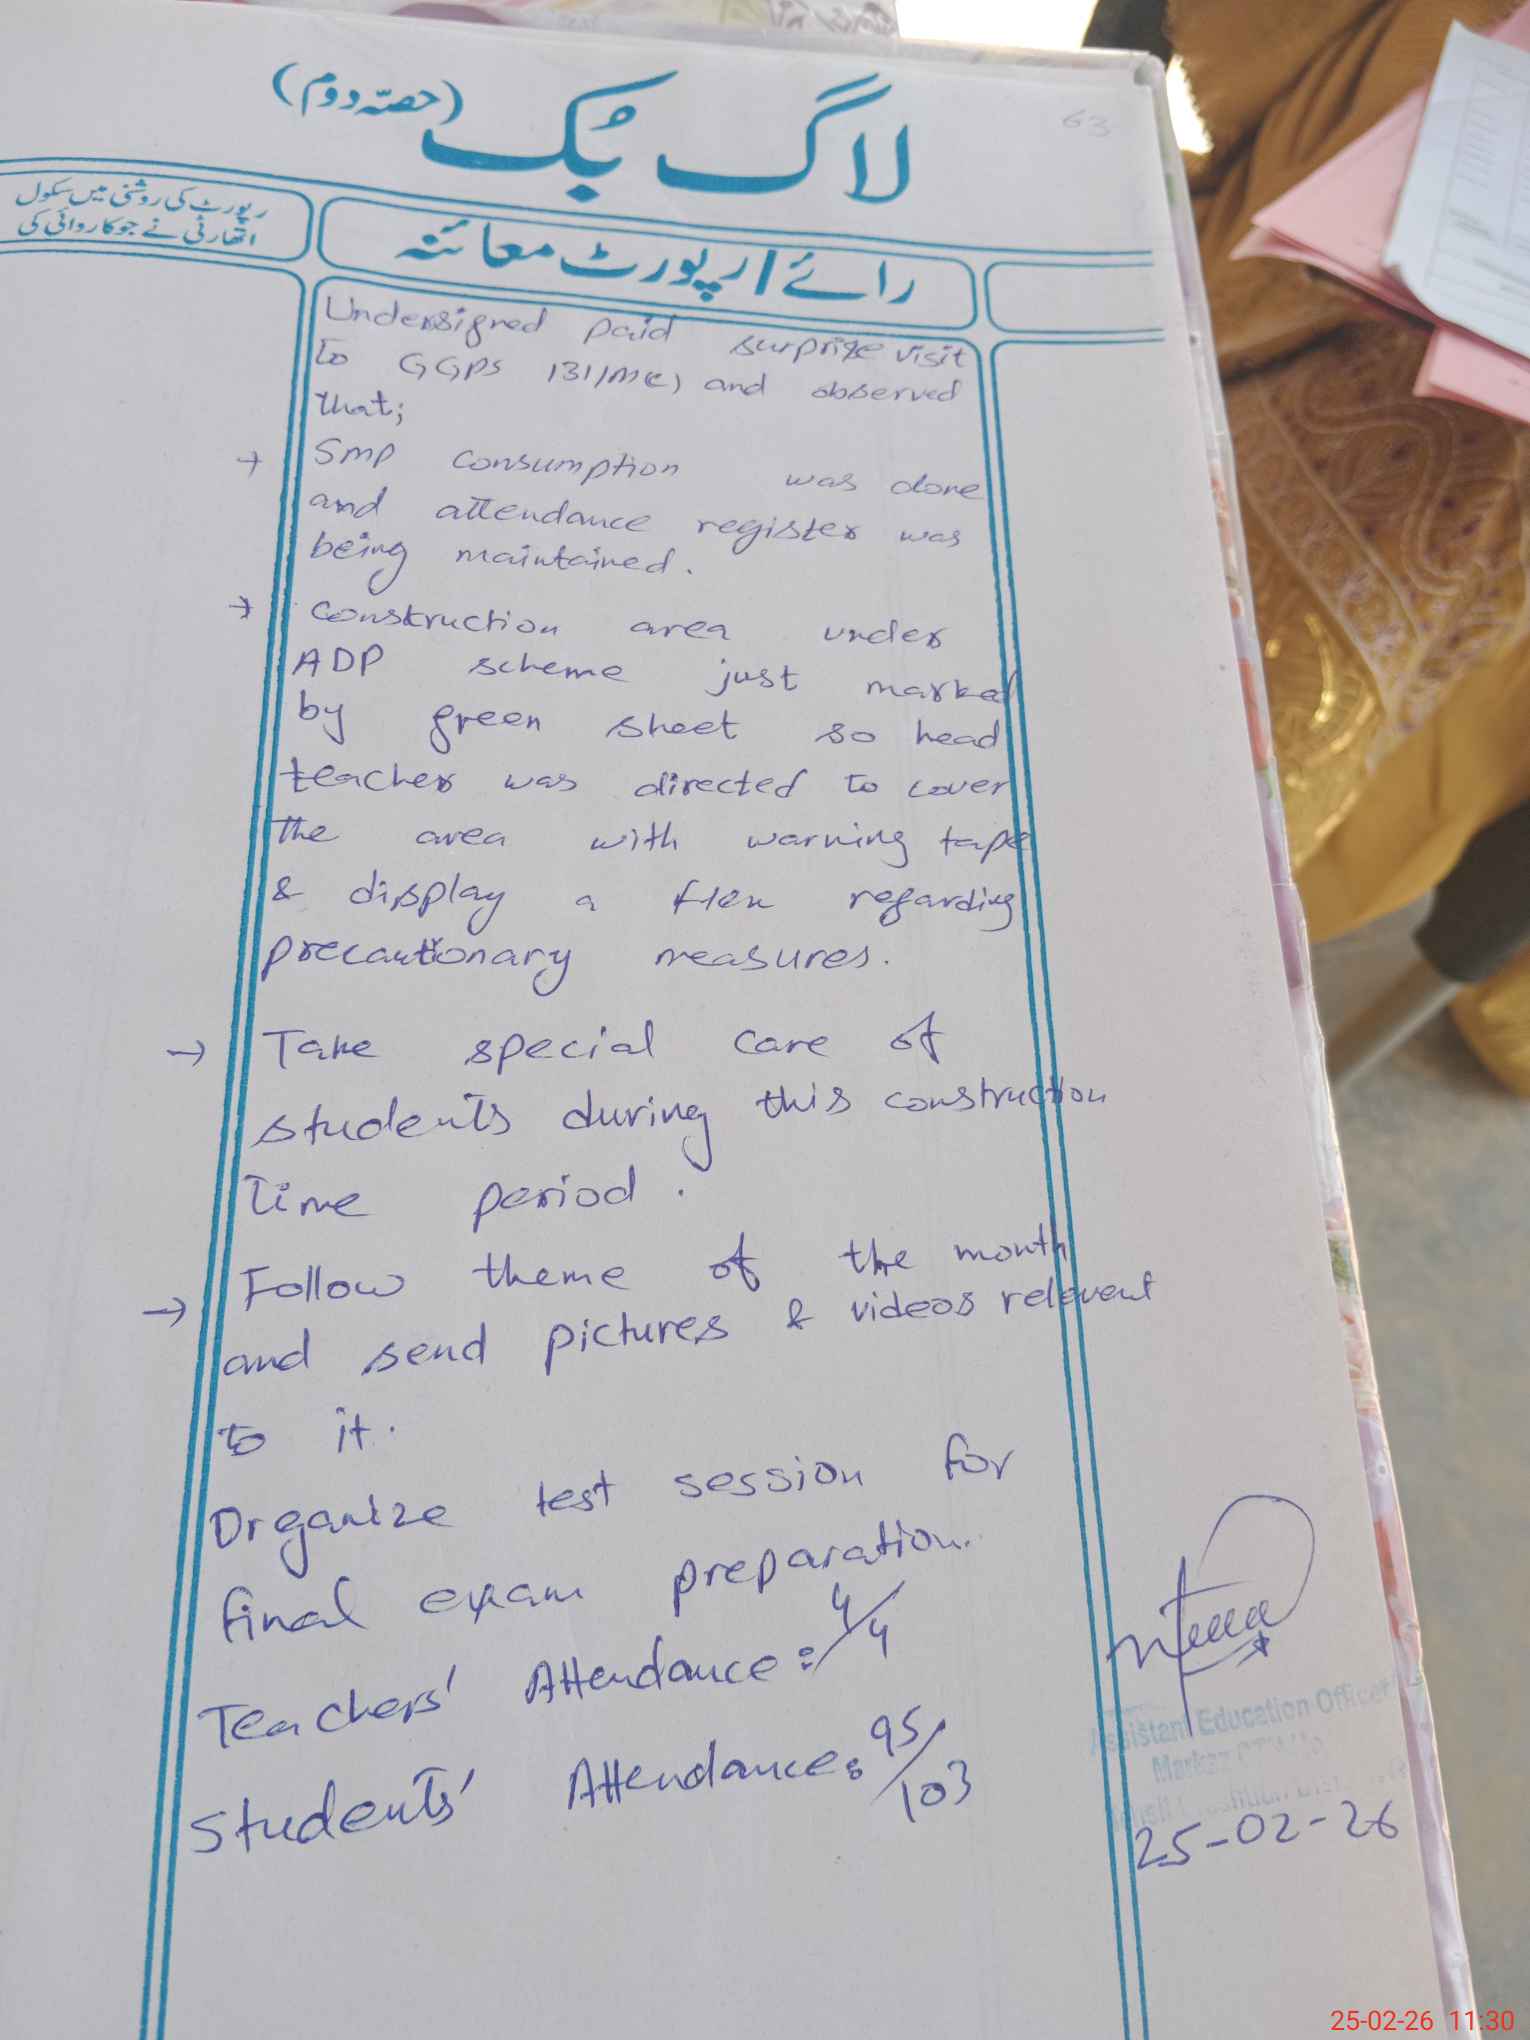 لاگ بُک (حصّہ دوم)
63
رپورٹ کی روشنی میں سکول
اتھارٹی نے جو کاروائی کی
رائے / رپورٹ معائنہ
Undersigned paid surprize visit
to GGPS 131/M(E) and observed
that;
→ SMP consumption was done
and attendance register was
being maintained.
→ Construction area under
ADP scheme just marked
by green sheet so head
teacher was directed to cover
the area with warning tape
& display a flex regarding
precautionary measures.
→ Take special care of
students during this construction
time period.
→ Follow theme of the month
and send pictures & videos relevent
to it.
Organize test session for
final exam preparation.
Teachers' Attendance: 4/4
Students' Attendance: 95/103
Assistant Education Officer
Markaz
25-02-26
25-02-26 11:30